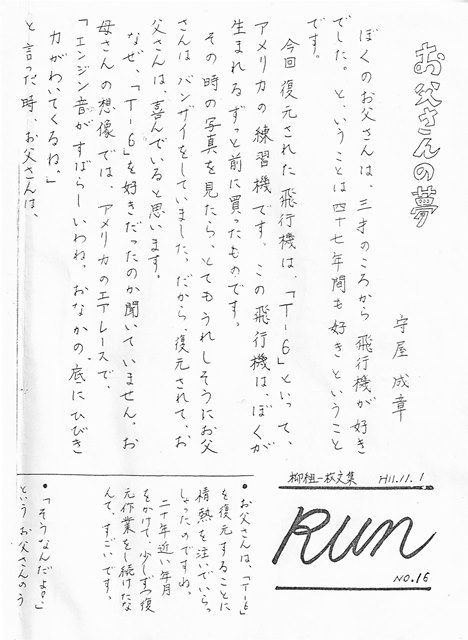 お父さんの夢
守屋成章
ぼくのお父さんは、三才のころから飛行機が好き
でした。と、いうことは四十七年間も好きということ
です。
今回復元された飛行機は、「T-6」といって、
アメリカの練習機です。この飛行機は、ぼくが
生まれるずっと前に買ったものです。
その時の写真を見たら、とてもうれしそうにお父
さんはバンザイをしていました。だから、復元されて、お
父さんは、喜んでいると思います。
なぜ、「T-6」を好きだったのか聞いていません。お
母さんの想像では、アメリカのエアレースで、
「エンジン音がすばらしいわね。おなかの底にひびき
力がわいてくるね。」
と言った時、お父さんは、
柳組一枚文集 H11.11.1
Run
NO.16
• お父さんは、「T-6」
を復元することに
情熱を注いでいらっ
しゃったのですね。
二十年近い年月
をかけて、少しずつ復
元作業をし続けたな
んて、すごいです。
• 「そうなんだよ。」
というお父さんのう